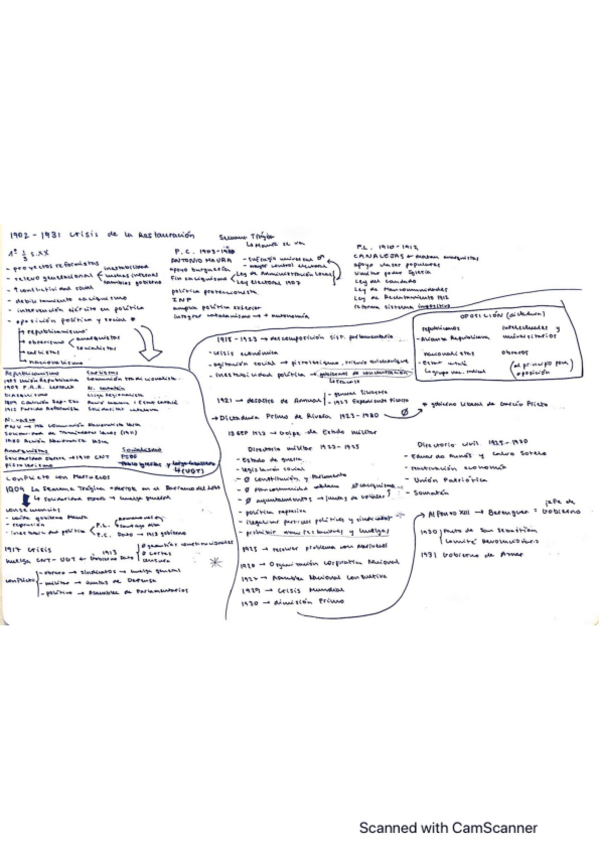 1902 - 1931 Crisis de la Restauración
1º 1/3 s.XX
- proyectos reformistas
- relevo generacional
inestabilidad
luchas internas
cambios gobierno
- ↑ conflictividad social
- debilitamiento caciquismo
- intervención ejército en política
- oposición política y social
→ republicanismo
→ obrerismo
anarquistas
socialistas
→ carlistas
→ nacionalismo
Semana Trágica
La Maura se va
P.C. 1903-1909
ANTONIO MAURA
apoyo burguesía
Fin caciquismo
- sufragio universal
Ley de Administración Local
Ley Electoral 1907
política proteccionista
INP
amplia política exterior
integrar catalanismo → autonomía
P.L. 1910-1912
CANALEJAS → matan anarquistas
apoyo clases populares
limitar poder Iglesia
Ley del Candado
Ley de Mancomunidades
Ley de Reclutamiento 1912
reforma sistema impositivo
OPOSICIÓN (dictadura)
republicanos
- Alianza Republicana
intelectuales y
universitarios
nacionalistas
- Estat Català
obreros
(al principio poca
oposición)
1918 - 1923 → descomposición sist. parlamentario
- crisis económica
- agitación social → pistolerismo, trienio bolchevique
- inestabilidad política → gobiernos de concentración
1921 → desastre de Annual
- general Silvestre
- 1923 Expediente Picasso
→ Dictadura Primo de Rivera 1923 - 1930
* gobierno liberal de García Prieto
13 SEP 1923 → Golpe de Estado militar
Directorio militar 1923-1925
- Estado de guerra
- legislación social
- Ø Constitución y Parlamento
- Ø Mancomunidad catalana
- Ø ayuntamientos → juntas de vocales
- política represiva
- ilegalizar partidos políticos y sindicatos
- prohibir manifestaciones y huelgas
1925 → resolver problema con Marruecos
1926 → Organización Corporativa Nacional
1927 → Asamblea Nacional Consultiva
1929 → Crisis Mundial
1930 → dimisión Primo
Directorio civil 1925-1930
- Eduardo Aunós y Calvo Sotelo
- Unión Patriótica
- Somatén
→ Alfonso XIII → Berenguer → jefe de
gobierno
1930
Pacto de San Sebastián
Comité Revolucionario
1931 Gobierno de Aznar
Republicanismo
1903 Unión Republicana
1908 P.R.R. Lerroux
1909 Conjunción Rep-Soc
1912 Partido Reformista
Carlistas
Comunión Tradicionalista
Catalanismo
Lliga Regionalista
Solidaritat Catalana
N. vasco
PNV → MB Comunión Nacionalista Vasca
Solidaridad de Trabajadores Vascos (1911)
1930 Acción Nacionalista Vasca
Anarquistas
Solidaridad Obrera → 1910 CNT
pistolerismo
Socialismo
PSOE
(UGT)
Conflicto con Marruecos
1909 La Semana Trágica → derrota en el Barranco del Lobo
↳ Solidaridad Obrera → huelga general
consecuencias
- caída gobierno Maura
- represión
- inestabilidad política
P.L.
P.C. Dato → 1913 gobierno
1917 Crisis
huelga CNT - UGT ← Gobierno Dato
Ø garantías constitucionales
Ø Cortes
censura
conflicto
- obrero → sindicatos → huelga general
- militar → Juntas de Defensa
- político → Asamblea de Parlamentarios
Scanned with CamScanner